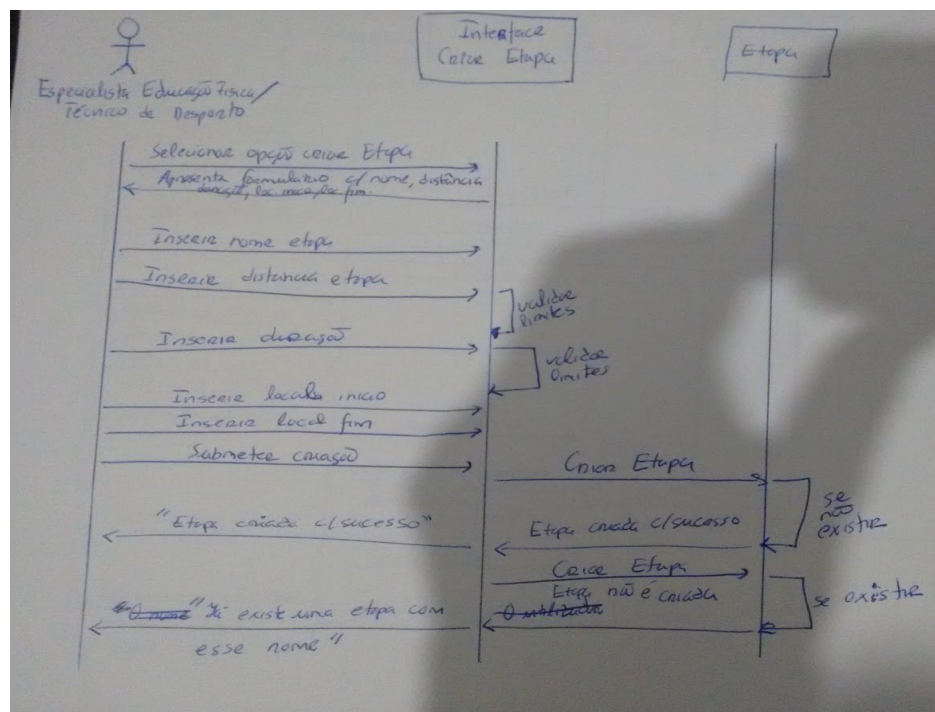 Interface
Criar Etapa
Etapa
Especialista Educação Física/
Técnico de Desporto
Selecionar opção criar Etapa
Apresenta formulário c/ nome, distância
duração, loc. inicio, loc. fim.
Inserir nome etapa
Inserir distância etapa
validar
limites
Inserir duração
validar
limites
Inserir local inicio
Inserir local fim
Submeter criação
Criar Etapa
se
não
existir
"Etapa criada c/sucesso"
Etapa criada c/sucesso
Criar Etapa
Etapa não é criada
O utilizador
se existir
"O nome" "Já existe uma etapa com
esse nome"